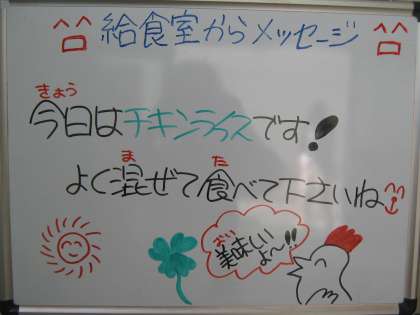 給食室からメッセージ
きょう
今日はチキンライスです!
ま た
よく混ぜて食べて下さいね
おい
美味しい
よ〜!!